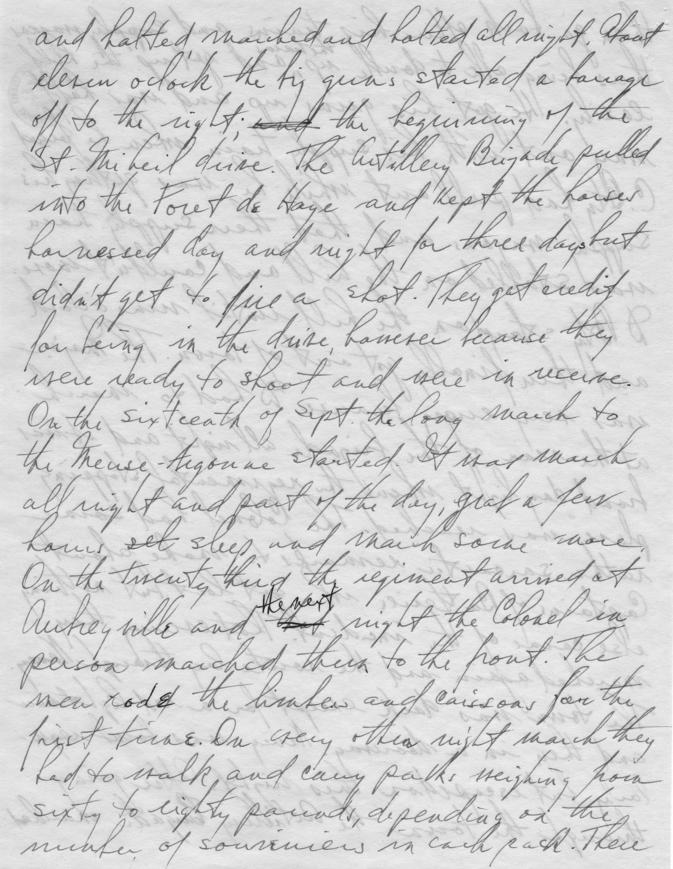 and halted, marched and halted all night. About
eleven oclock the big guns started a barrage
off to the right; and the beginning of the
St. Miheil drive. The Artillery Brigade pulled
into the Foret de Haye and kept the horses
harnessed day and night for three days but
didn't get to fire a shot. They get credit
for being in the drive, however because they
were ready to shoot and were in reserve.
On the sixteenth of Sept. the long march to
the Meuse-Argonne started. It was march
all night and part of the day, grab a few
hours sleep and march some more.
On the twenty third the regiment arrived at
Aubreyville and the next night the Colonel in
person marched them to the front. The
men rode the limbers and caissons for the
first time. On every other night march they
had to walk, and carry packs weighing from
sixty to eighty pounds, depending on the
number of souviniers in each pack. There